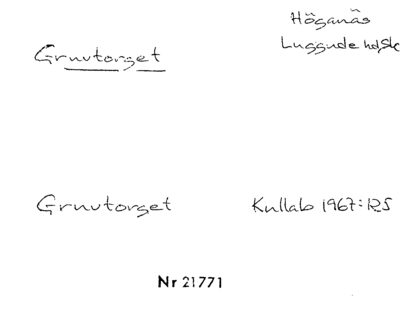 Höganäs
Gruvtorget
Luggude hd, Sk
Gruvtorget
Kullab 1967:125
Nr 21771